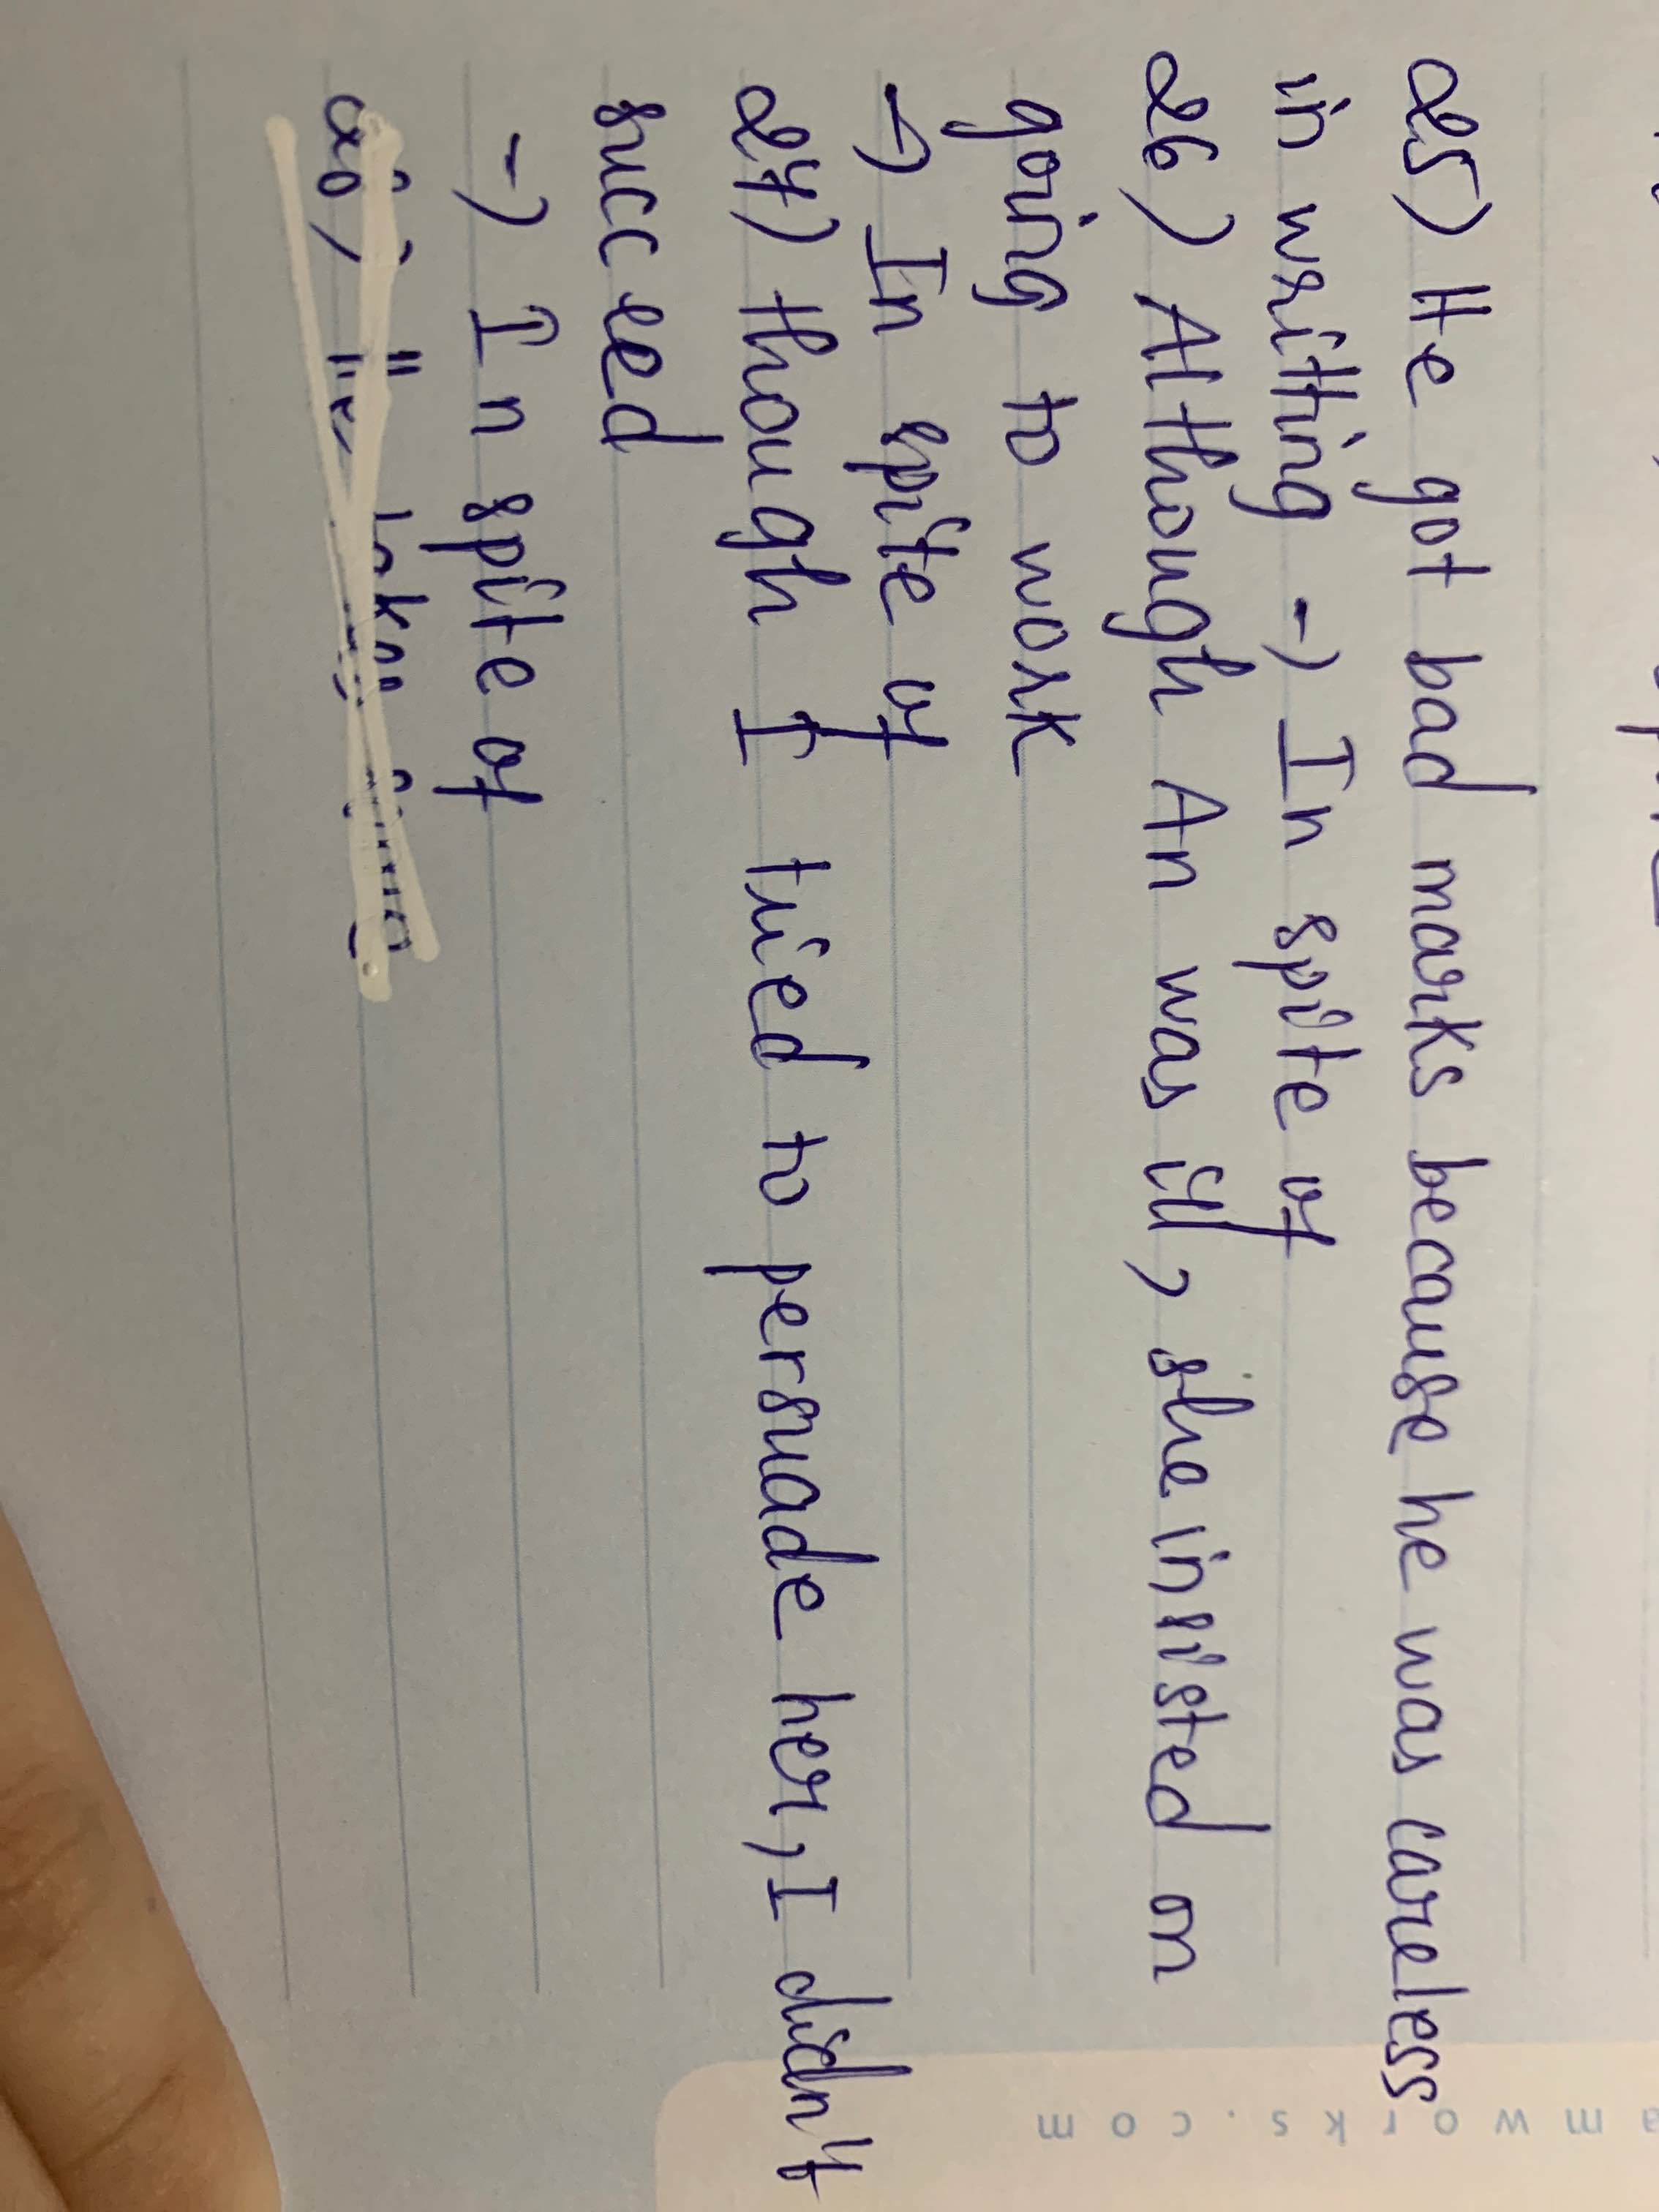 25) He got bad marks because he was careless
in writting -) In spite of
26) Although An was ill, she insisted on
going to work
-) In spite of
27) though I tried to persuade her, I didn't
succeed
-) In spite of
amworks.com